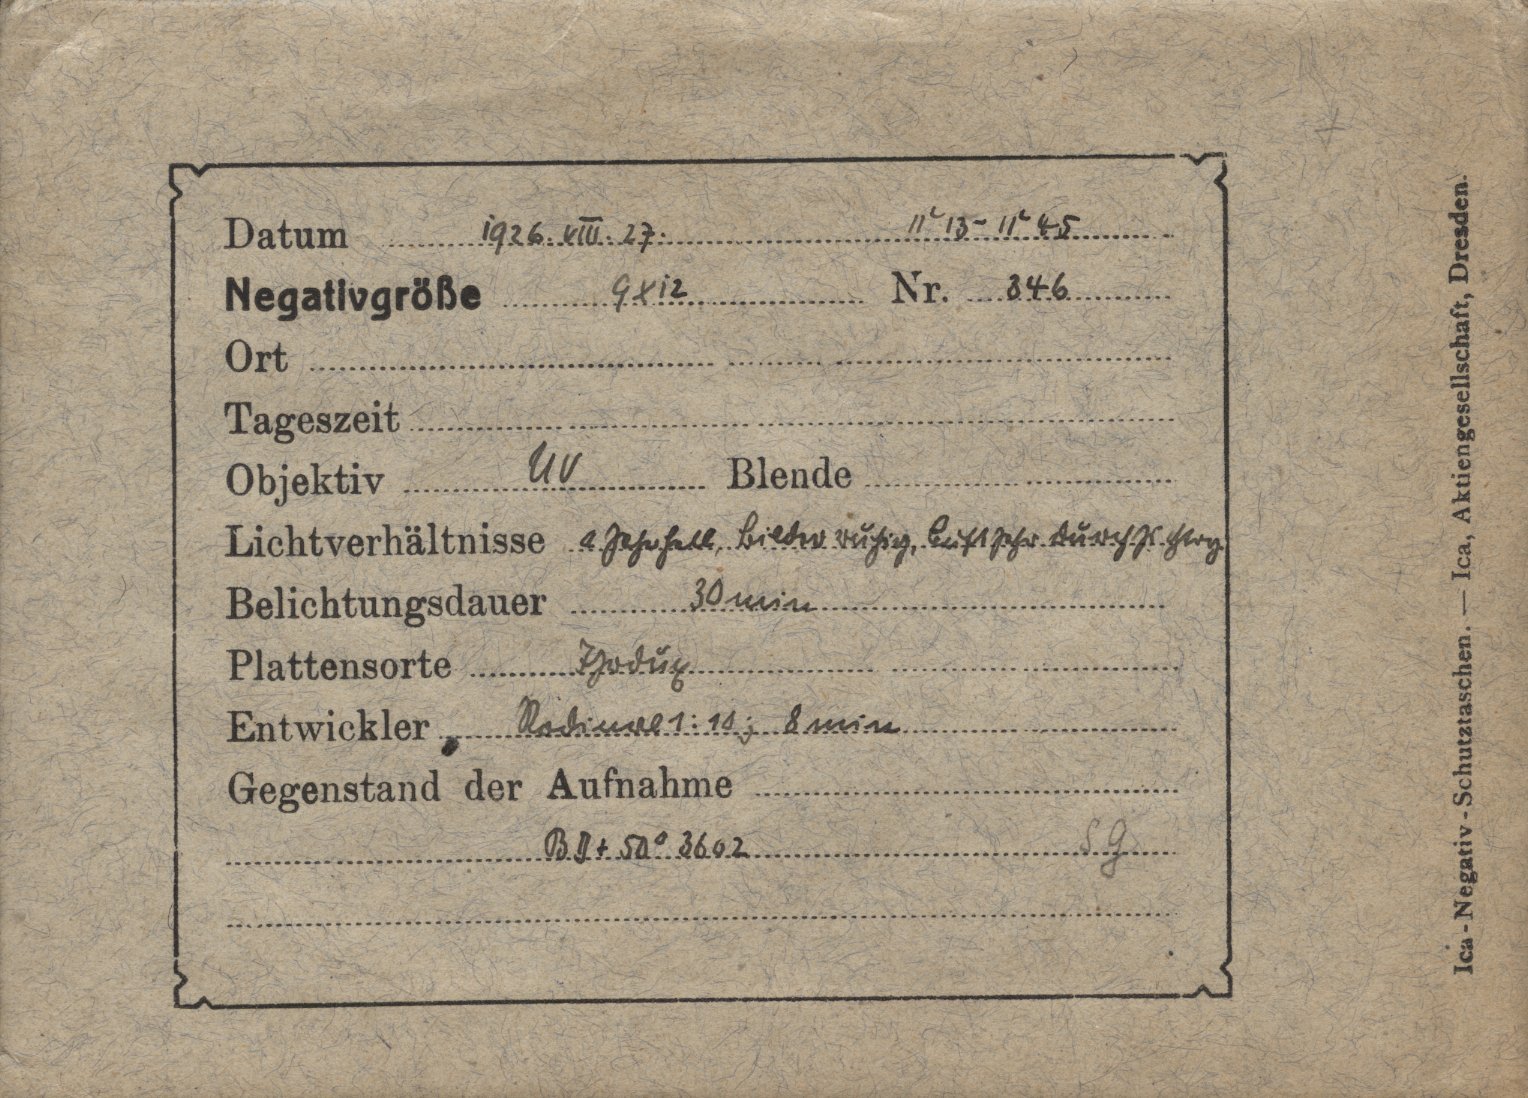 Datum 1926. VIII. 27. 11ʰ 13 - 11ʰ 45
Negativgröße 9x12 Nr. 346
Ort
Tageszeit
Objektiv UV Blende
Lichtverhältnisse sehr hell, Bilder ruhig, Luft sehr durchsichtig
Belichtungsdauer 30 min
Plattensorte
Entwickler Rodinal 1:10; 8 min
Gegenstand der Aufnahme
BD + 50° 3602 SG
Ica-Negativ-Schutztaschen. — Ica, Aktiengesellschaft, Dresden.